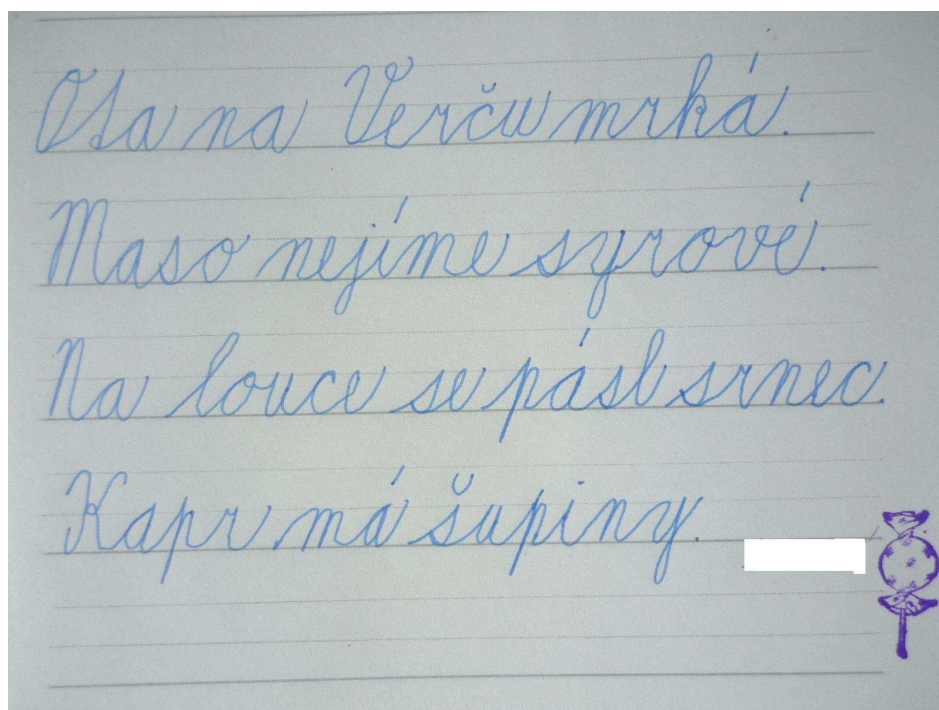 Ota na Verču mrká.
Maso nejíme syrové.
Na louce se pásl srnec.
Kapr má šupiny.